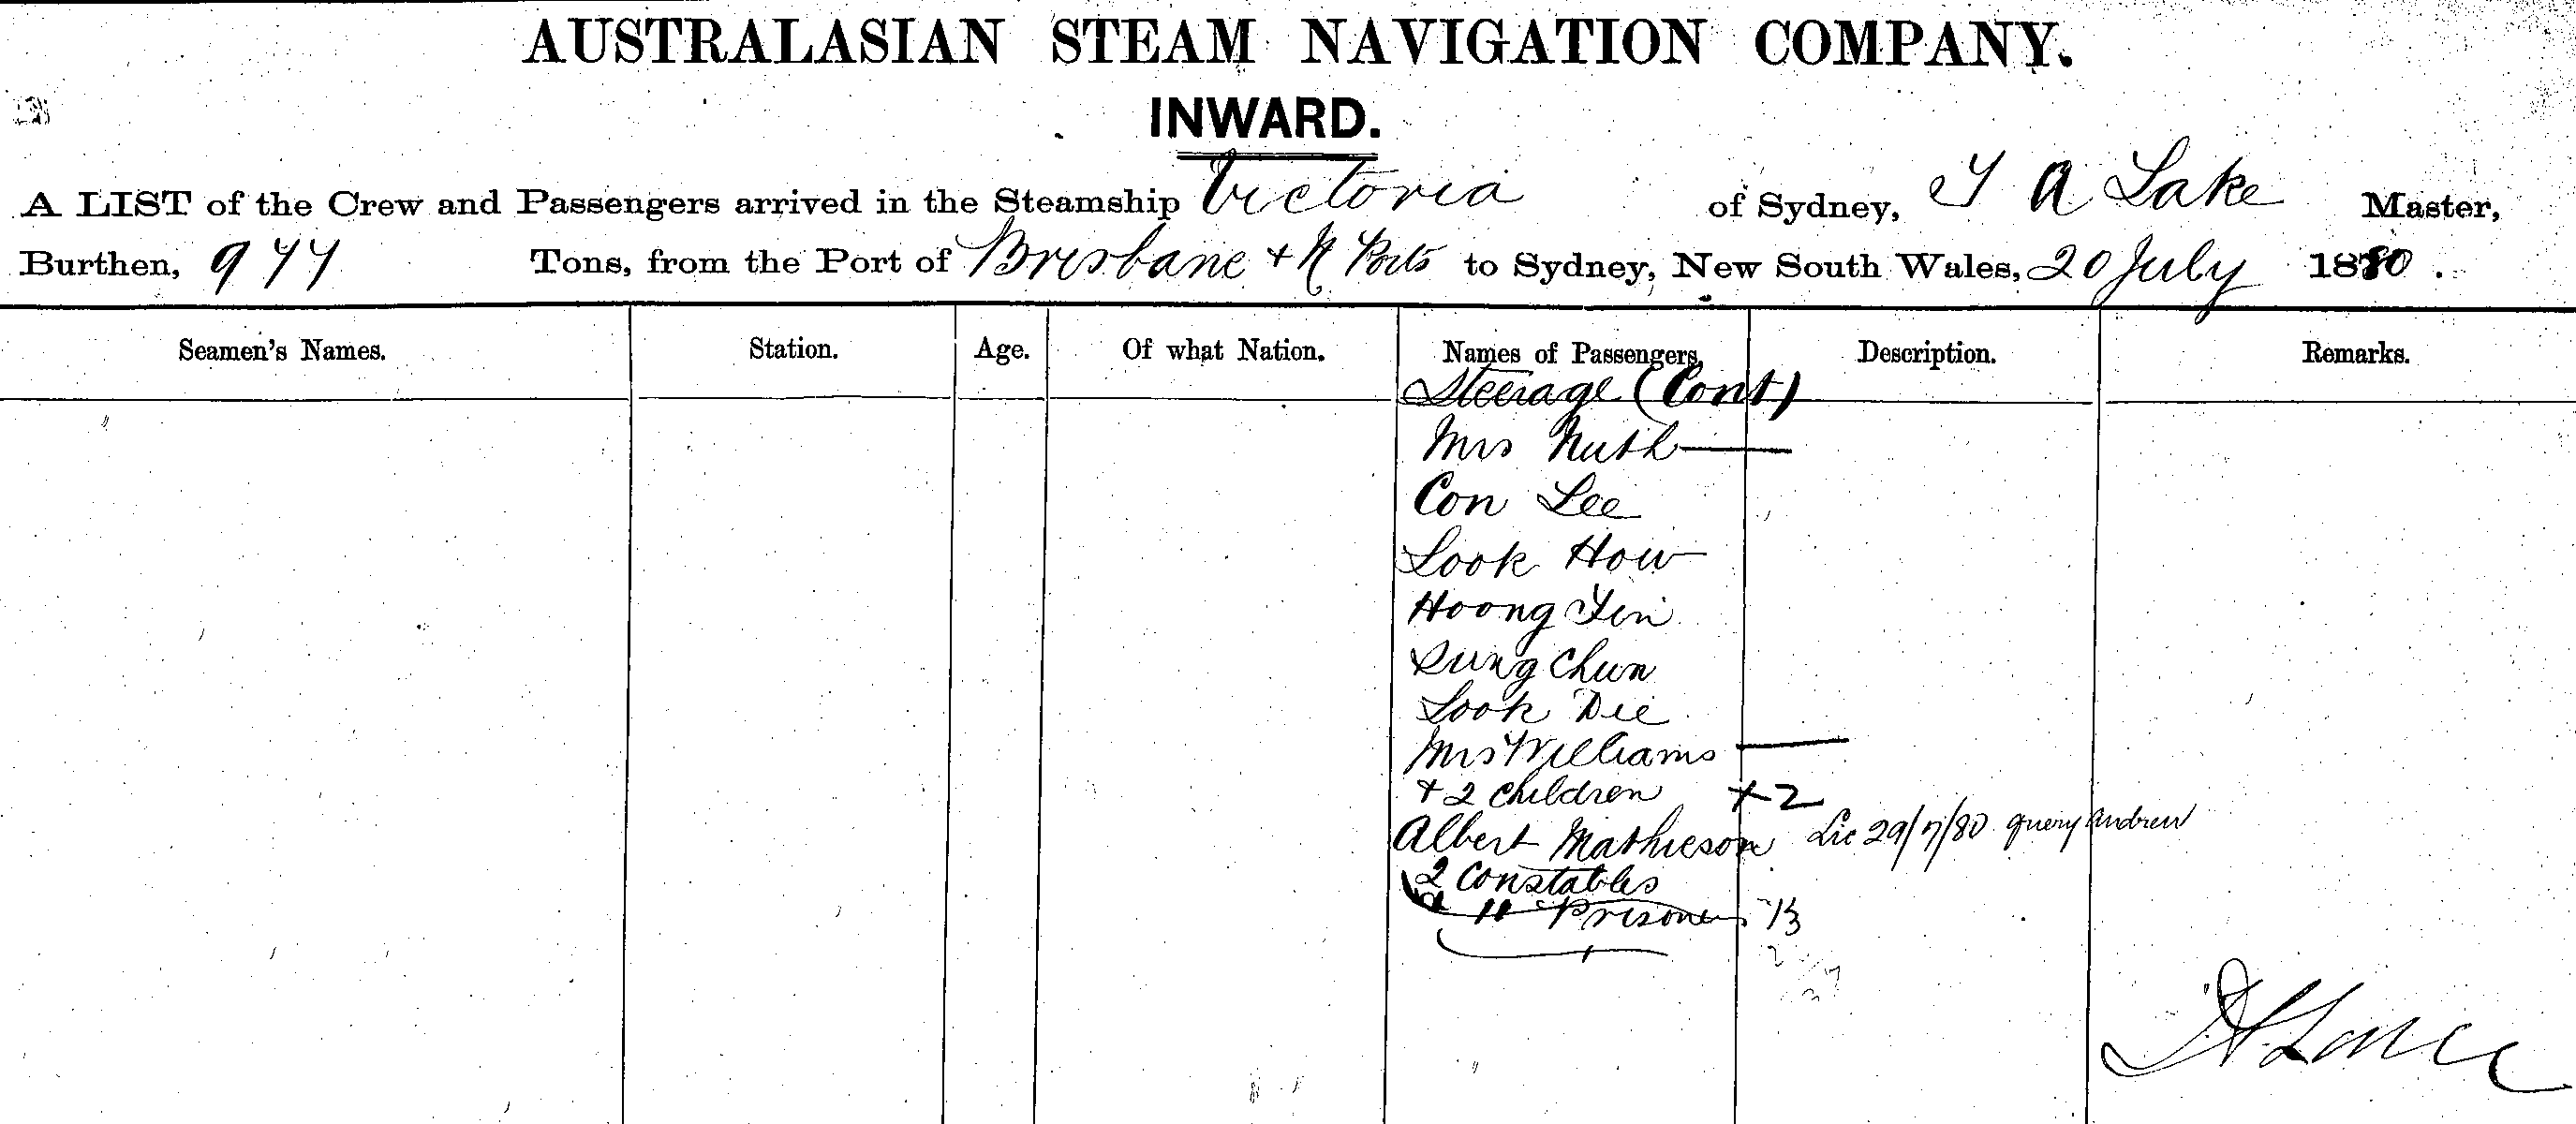 AUSTRALASIAN STEAM NAVIGATION COMPANY.
INWARD.
A LIST of the Crew and Passengers arrived in the Steamship Victoria of Sydney, T A Lake Master,
Burthen, 977 Tons, from the Port of Brisbane + N Ports to Sydney, New South Wales, 20 July 1880.
Seamen's Names. Station. Age. Of what Nation. Names of Passengers. Description. Remarks.
Steerage (Cont)
Mrs Nuth
Con Lee
Look How
Hoong Yen
Sung Chun
Look Die
Mrs Williams
+ 2 Children +2
Albert Mathieson Lic 29/7/80 query Andrew
2 Constables
11 Prisoners 13
T A Lake